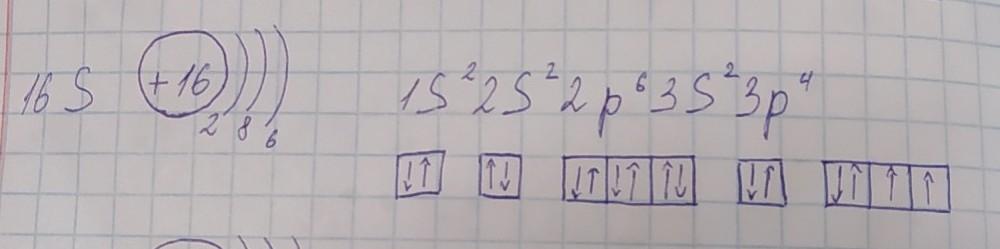 16 S +16 2 8 6 1S²2S²2p⁶3S²3p⁴
↓↑ ↑↓ ↓↑ ↓↑ ↑↓ ↓↑ ↓↑ ↑ ↑